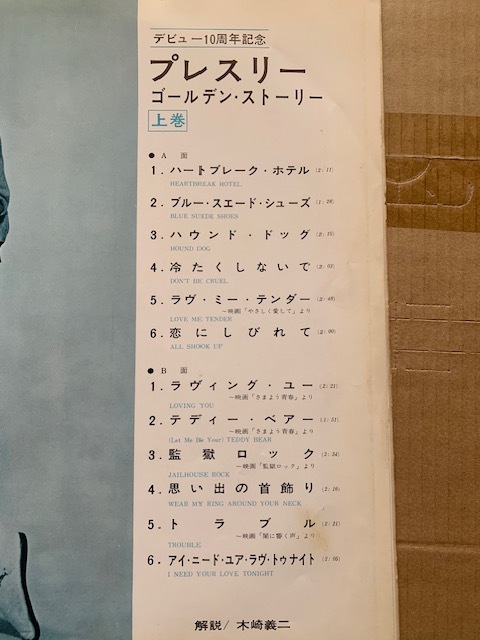 デビュー10周年記念
プレスリー
ゴールデン・ストーリー
上巻
● A 面
1. ハートブレーク・ホテル (2:11)
HEARTBREAK HOTEL
2. ブルー・スエード・シューズ (1:28)
BLUE SUEDE SHOES
3. ハウンド・ドッグ (2:15)
HOUND DOG
4. 冷たくしないで (2:03)
DON'T BE CRUEL
5. ラヴ・ミー・テンダー (2:48)
〜映画「やさしく愛して」より
LOVE ME TENDER
6. 恋にしびれて (2:00)
ALL SHOOK UP
● B 面
1. ラヴィング・ユー (2:21)
〜映画「さまよう青春」より
LOVING YOU
2. テディー・ベアー (1:51)
〜映画「さまよう青春」より
(Let Me Be Your) TEDDY BEAR
3. 監獄ロック (2:34)
〜映画「監獄ロック」より
JAILHOUSE ROCK
4. 思い出の首飾り (2:16)
WEAR MY RING AROUND YOUR NECK
5. トラブル (2:21)
〜映画「闇に響く声」より
TROUBLE
6. アイ・ニード・ユア・ラヴ・トゥナイト (2:05)
I NEED YOUR LOVE TONIGHT
解説/ 木崎義二